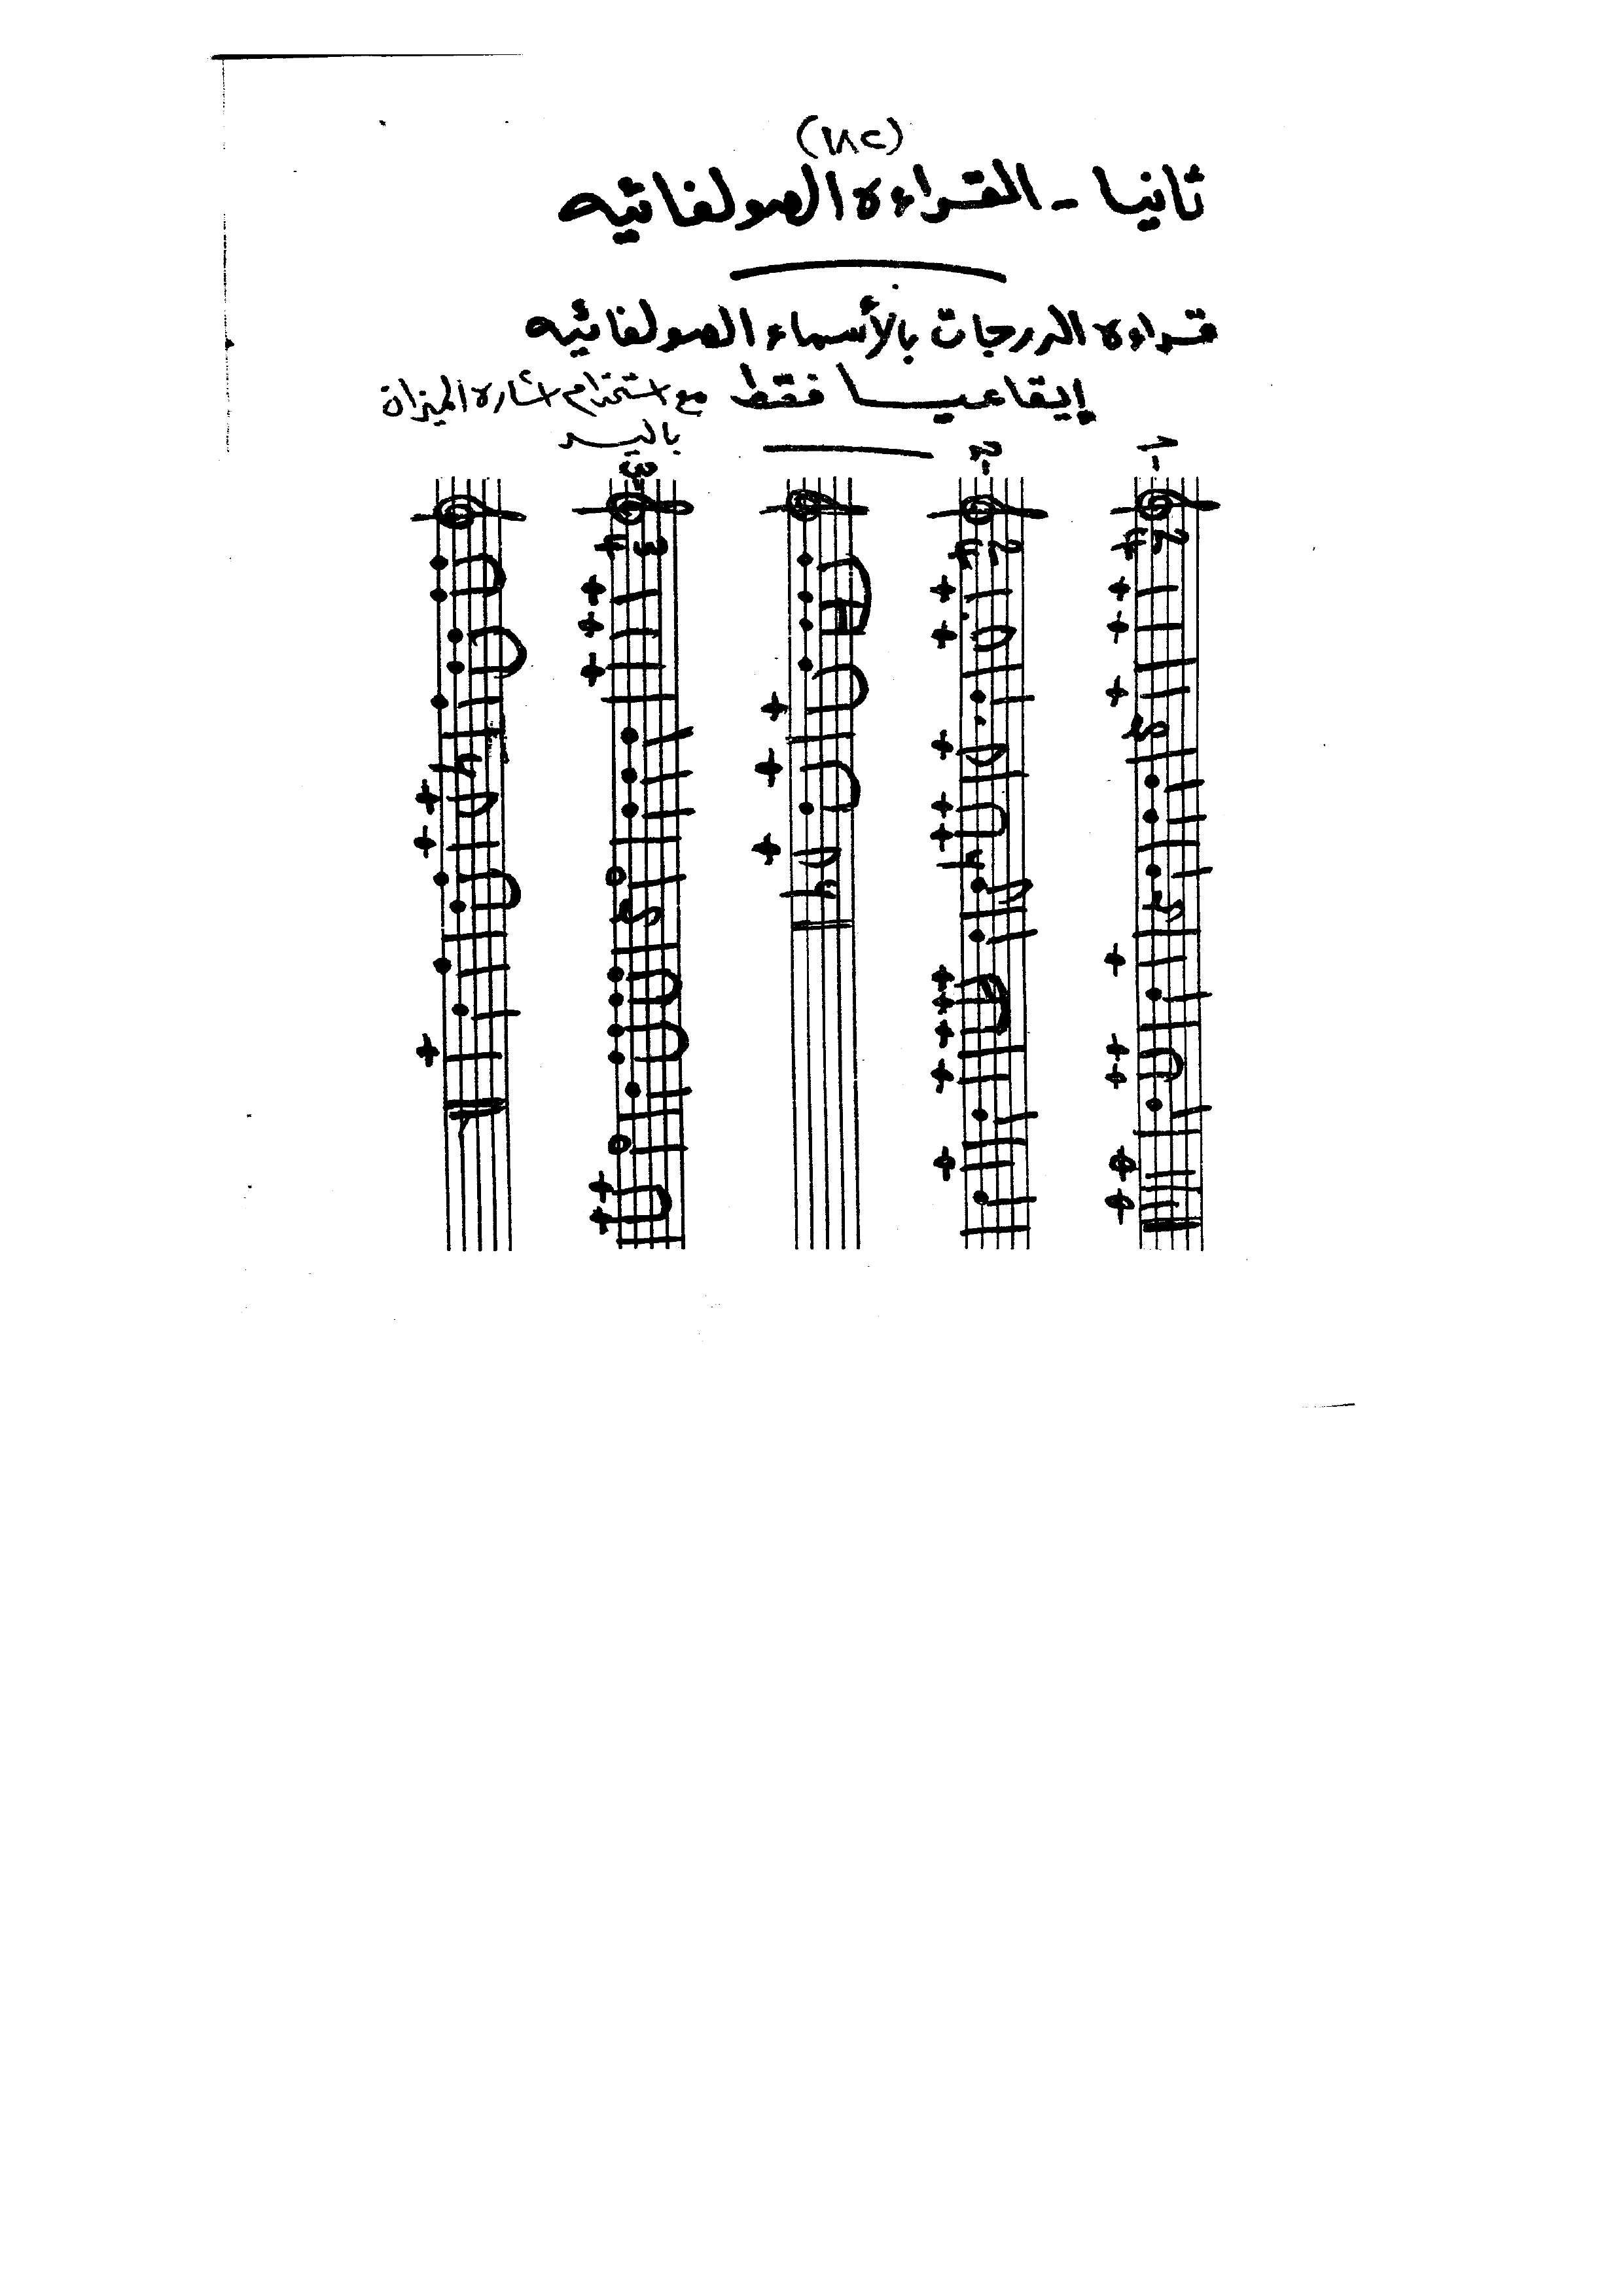 ثانيا - القراءة الصولفائيه
قراءة الدرجات بالأسماء الصولفائيه
إيقاعيا فقط مع استخدام اشارة الميزان
باليد
١-
٢-
٣-